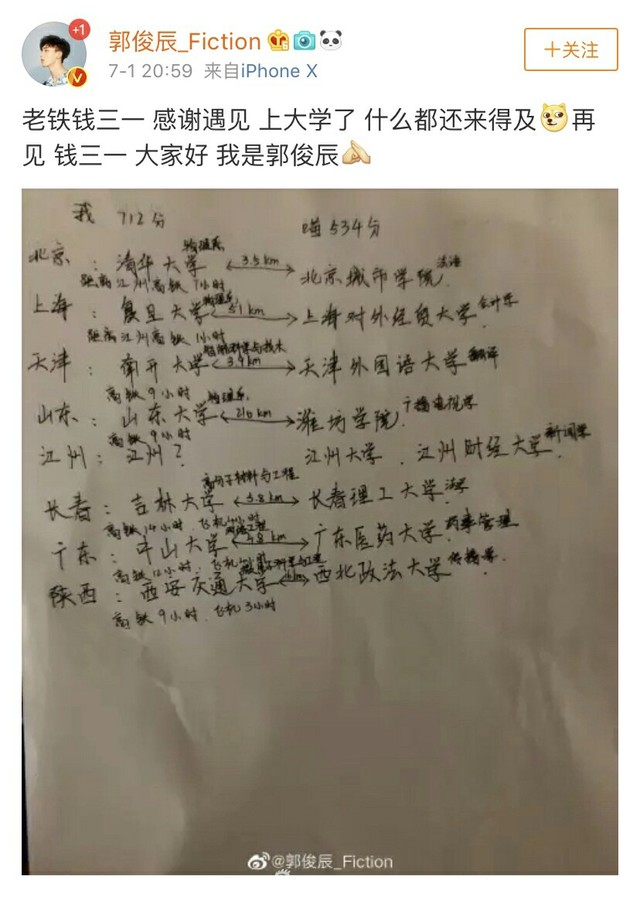 +1
郭俊辰_Fiction
7-1 20:59 来自iPhone X
+关注
老铁钱三一 感谢遇见 上大学了 什么都还来得及 再
见 钱三一 大家好 我是郭俊辰
我 712分 喵534分
北京：清华大学 物理系 3.5km 北京城市学院 法语
距离江州高铁7小时
上海：复旦大学 物理系 51km 上海对外经贸大学 会计学
距离江州高铁1小时
天津：南开大学 3.9km 天津外国语大学 翻译
高铁9小时
山东：山东大学 物理系 210km 潍坊学院 广播电视学
高铁9小时
江州：江州？ 江州大学．江州财经大学 新闻学
长春：吉林大学 高分子材料与工程 5.8km 长春理工大学
高铁14小时．飞机4小时
广东：中山大学 4.8km 广东医药大学 药事管理
高铁12小时．飞机
陕西：西安交通大学 西北政法大学 传播学
高铁9小时．飞机3小时
@郭俊辰_Fiction